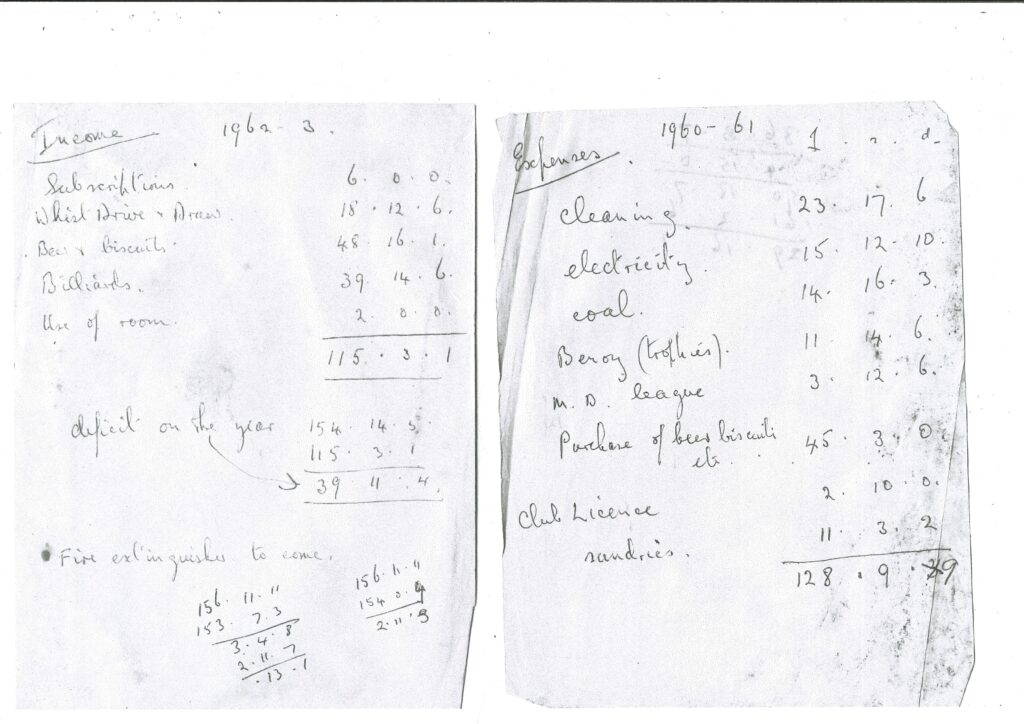 Income 1962 - 3.
Subscriptions. 6. 0. 0.
Whist Drive & Draw. 18. 12. 6.
Beer & biscuits. 48. 16. 1.
Billiards. 39. 14. 6.
Use of room. 2. 0. 0.
115. 3. 1
deficit on the year 154. 14. 5.
115. 3. 1
39 11. 4.
Fire extinguisher to come.
156. 11. 11
153. 7. 3
3. 4. 8
2. 11. 7
. 13. 1
156. 11. 11
154. 0.
2. 11.
1960-61
Expenses.
cleaning. 23. 17. 6
electricity. 15. 12. 10.
coal. 14. 16. 3
(trophies). 11. 14. 6.
M. D. league 3. 12. 6.
Purchase of beer biscuits 45. 3. 0.
etc.
Club Licence 2. 10. 0.
sundries. 11. 3. 2
128. 9. 9